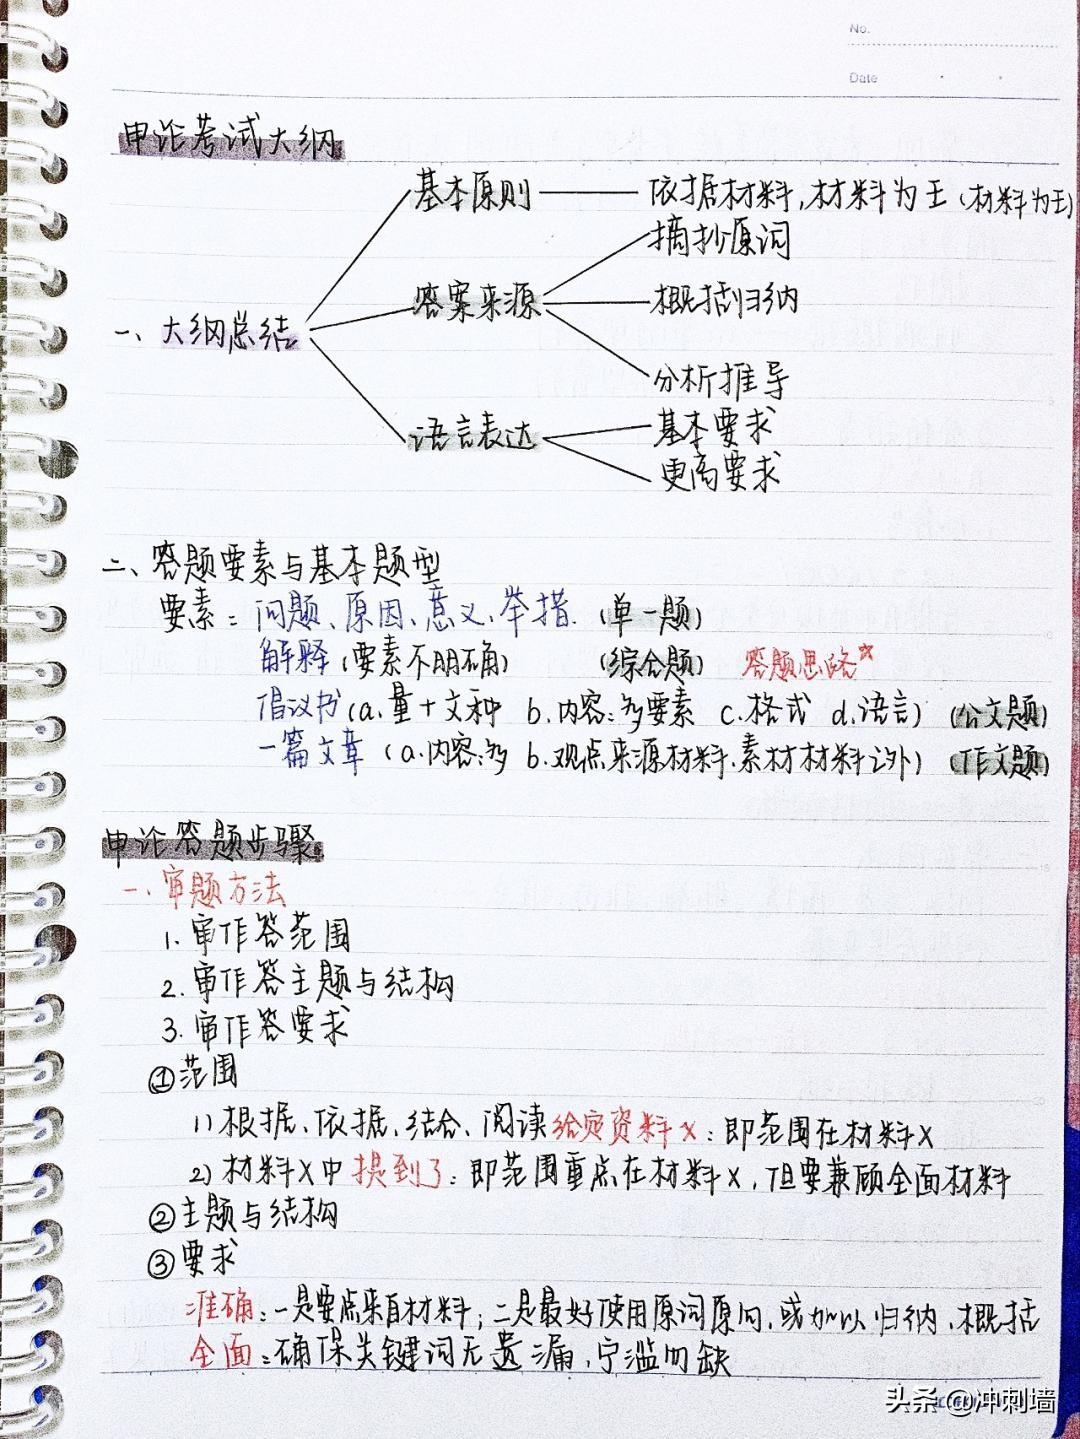 No.
Date
申论考试大纲
基本原则 依据材料,材料为王(材料为王)
摘抄原词
答案来源 概括归纳
一、大纲总结
分析推导
语言表达 基本要求
更高要求
二、答题要素与基本题型
要素:问题、原因、意义、举措.(单一题)
解释(要素不明确) (综合题) 答题思路☆
倡议书(a.量+文种 b.内容:多要素 c.格式 d.语言) (公文题)
一篇文章(a.内容:多 b.观点来源材料.素材材料之外) (作文题)
申论答题步骤
一、审题方法
1.审作答范围
2.审作答主题与结构
3.审作答要求
①范围
1)根据、依据、结合、阅读给定资料X:即范围在材料X
2)材料X中提到了:即范围重点在材料X,但要兼顾全面材料
②主题与结构
③要求
准确:一是要点来自材料;二是最好使用原词原句,或加以归纳、概括
全面:确保关键词无遗漏,宁滥勿缺
头条@冲刺墙